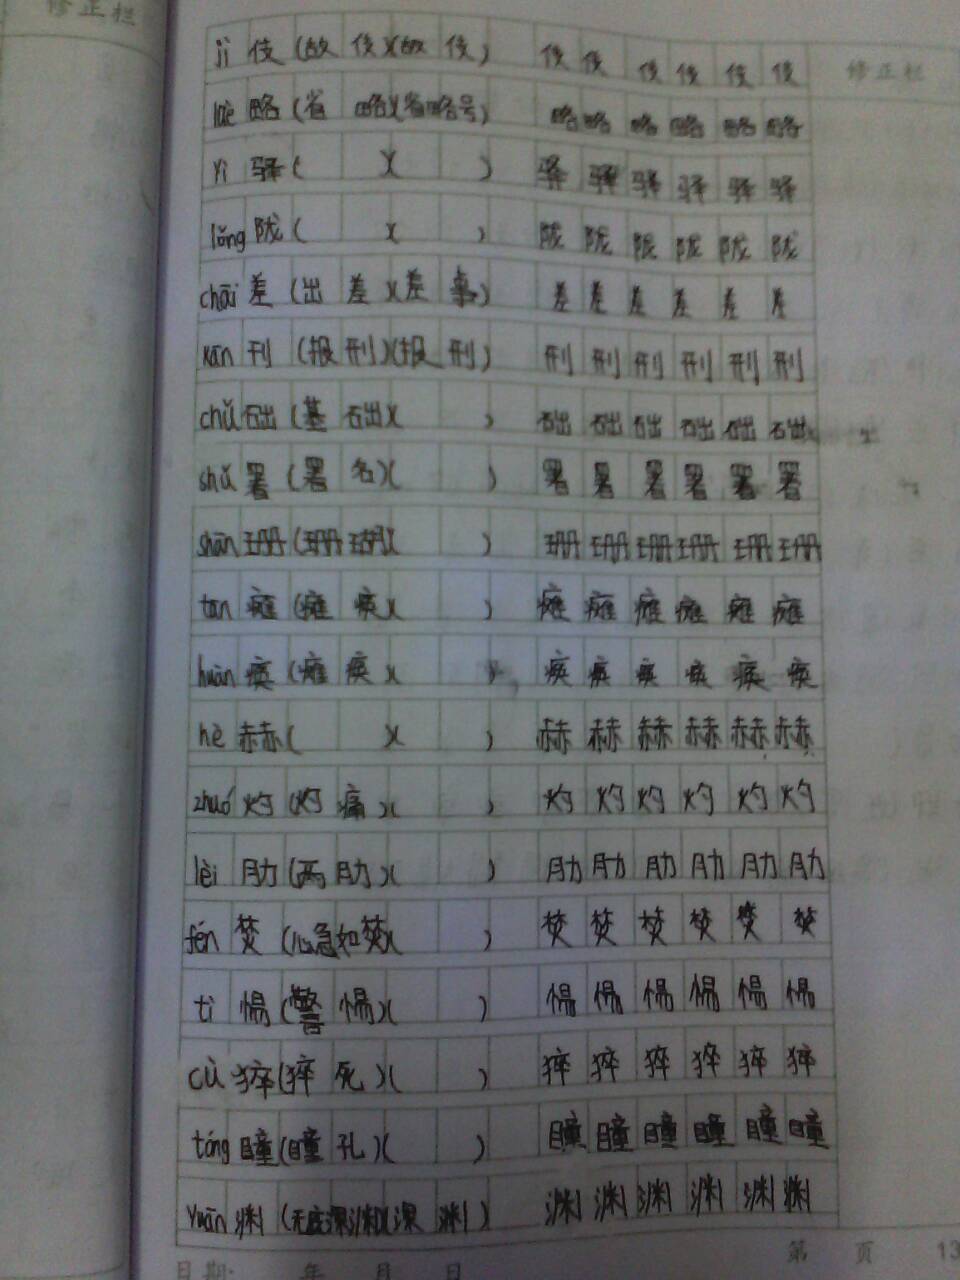 修正栏
jì 伎 (故 伎)(故 伎) 伎 伎 伎 伎 伎 伎 修正栏
lüè 略 (省 略)(省略号) 略 略 略 略 略 略
yì 驿 ( )( ) 驿 驿 驿 驿 驿 驿
lǒng 陇 ( )( ) 陇 陇 陇 陇 陇 陇
chāi 差 (出 差)(差 事) 差 差 差 差 差 差
kān 刊 (报 刑)(报 刑) 刑 刑 刑 刑 刑 刑
chǔ 础 (基 础)( ) 础 础 础 础 础 础
shǔ 署 (署 名)( ) 署 署 署 署 署 署
shān 珊 (珊 瑚)( ) 珊 珊 珊 珊 珊 珊
tān 瘫 (瘫 痪)( ) 瘫 瘫 瘫 瘫 瘫 瘫
huàn 痪 (瘫 痪)( ) 痪 痪 痪 痪 痪 痪
hè 赫 ( )( ) 赫 赫 赫 赫 赫 赫
zhuó 灼 (灼 痛)( ) 灼 灼 灼 灼 灼 灼
lèi 肋 (两 肋)( ) 肋 肋 肋 肋 肋 肋
fén 焚 (心急如焚)( ) 焚 焚 焚 焚 焚 焚
tì 惕 (警 惕)( ) 惕 惕 惕 惕 惕 惕
cù 猝 (猝 死)( ) 猝 猝 猝 猝 猝 猝
tóng 瞳 (瞳 孔)( ) 瞳 瞳 瞳 瞳 瞳 瞳
yuān 渊 (无底深渊)(深 渊) 渊 渊 渊 渊 渊 渊
第 页 13
日期: 年 月 日